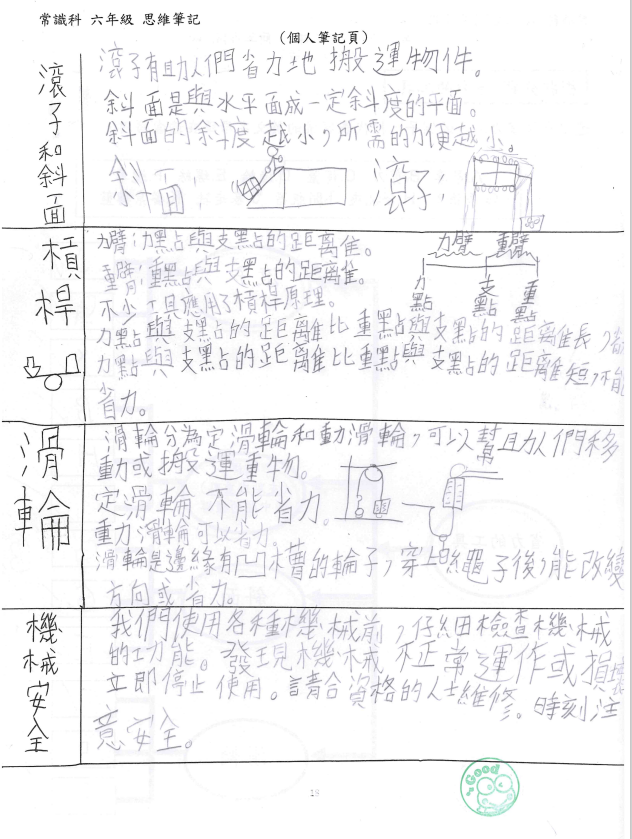 常識科 六年級 思維筆記
(個人筆記頁)
滾子和斜面
滾子有助人們省力地搬運物件。
斜面是與水平面成一定斜度的平面。
斜面的斜度越小，所需的力便越小。
斜面：
滾子：
槓桿
力臂：力點與支點的距離。
重臂：重點與支點的距離。
不少工具應用了槓桿原理。
力點與支點的距離比重點與支點的距離長，
力點與支點的距離比重點與支點的距離短，不能
省力。
力臂 重臂
力點 支點 重點
滑輪
滑輪分為定滑輪和動滑輪，可以幫助人們移
動或搬運重物。
定滑輪不能省力。
重力滑輪可以省力。
滑輪是邊緣有凹槽的輪子，穿上繩子後，能改變
方向或省力。
機械安全
我們使用各種機械前，仔細檢查機械
的功能。發現機械不正常運作或損壞
立即停止使用。請合資格的人士維修。時刻注
意安全。
Good
19